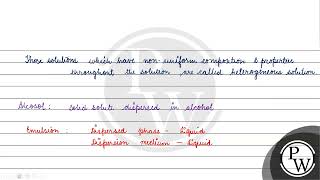 Those solutions which have non-uniform composition & properties
throughout the solution are called heterogeneous solution.
Alcosol : Solid solute dispersed in alcohol
Emulsion : Dispersed phase - Liquid
Dispersion medium - Liquid
PW